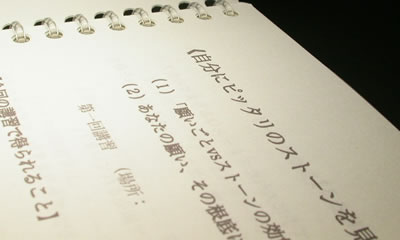 《自分にピッタリのストーンを見
(1) 「願いごとvsストーンの効
(2) あなたの願い、その根底に
第一回講習 （場所：
回の講習で得られること】